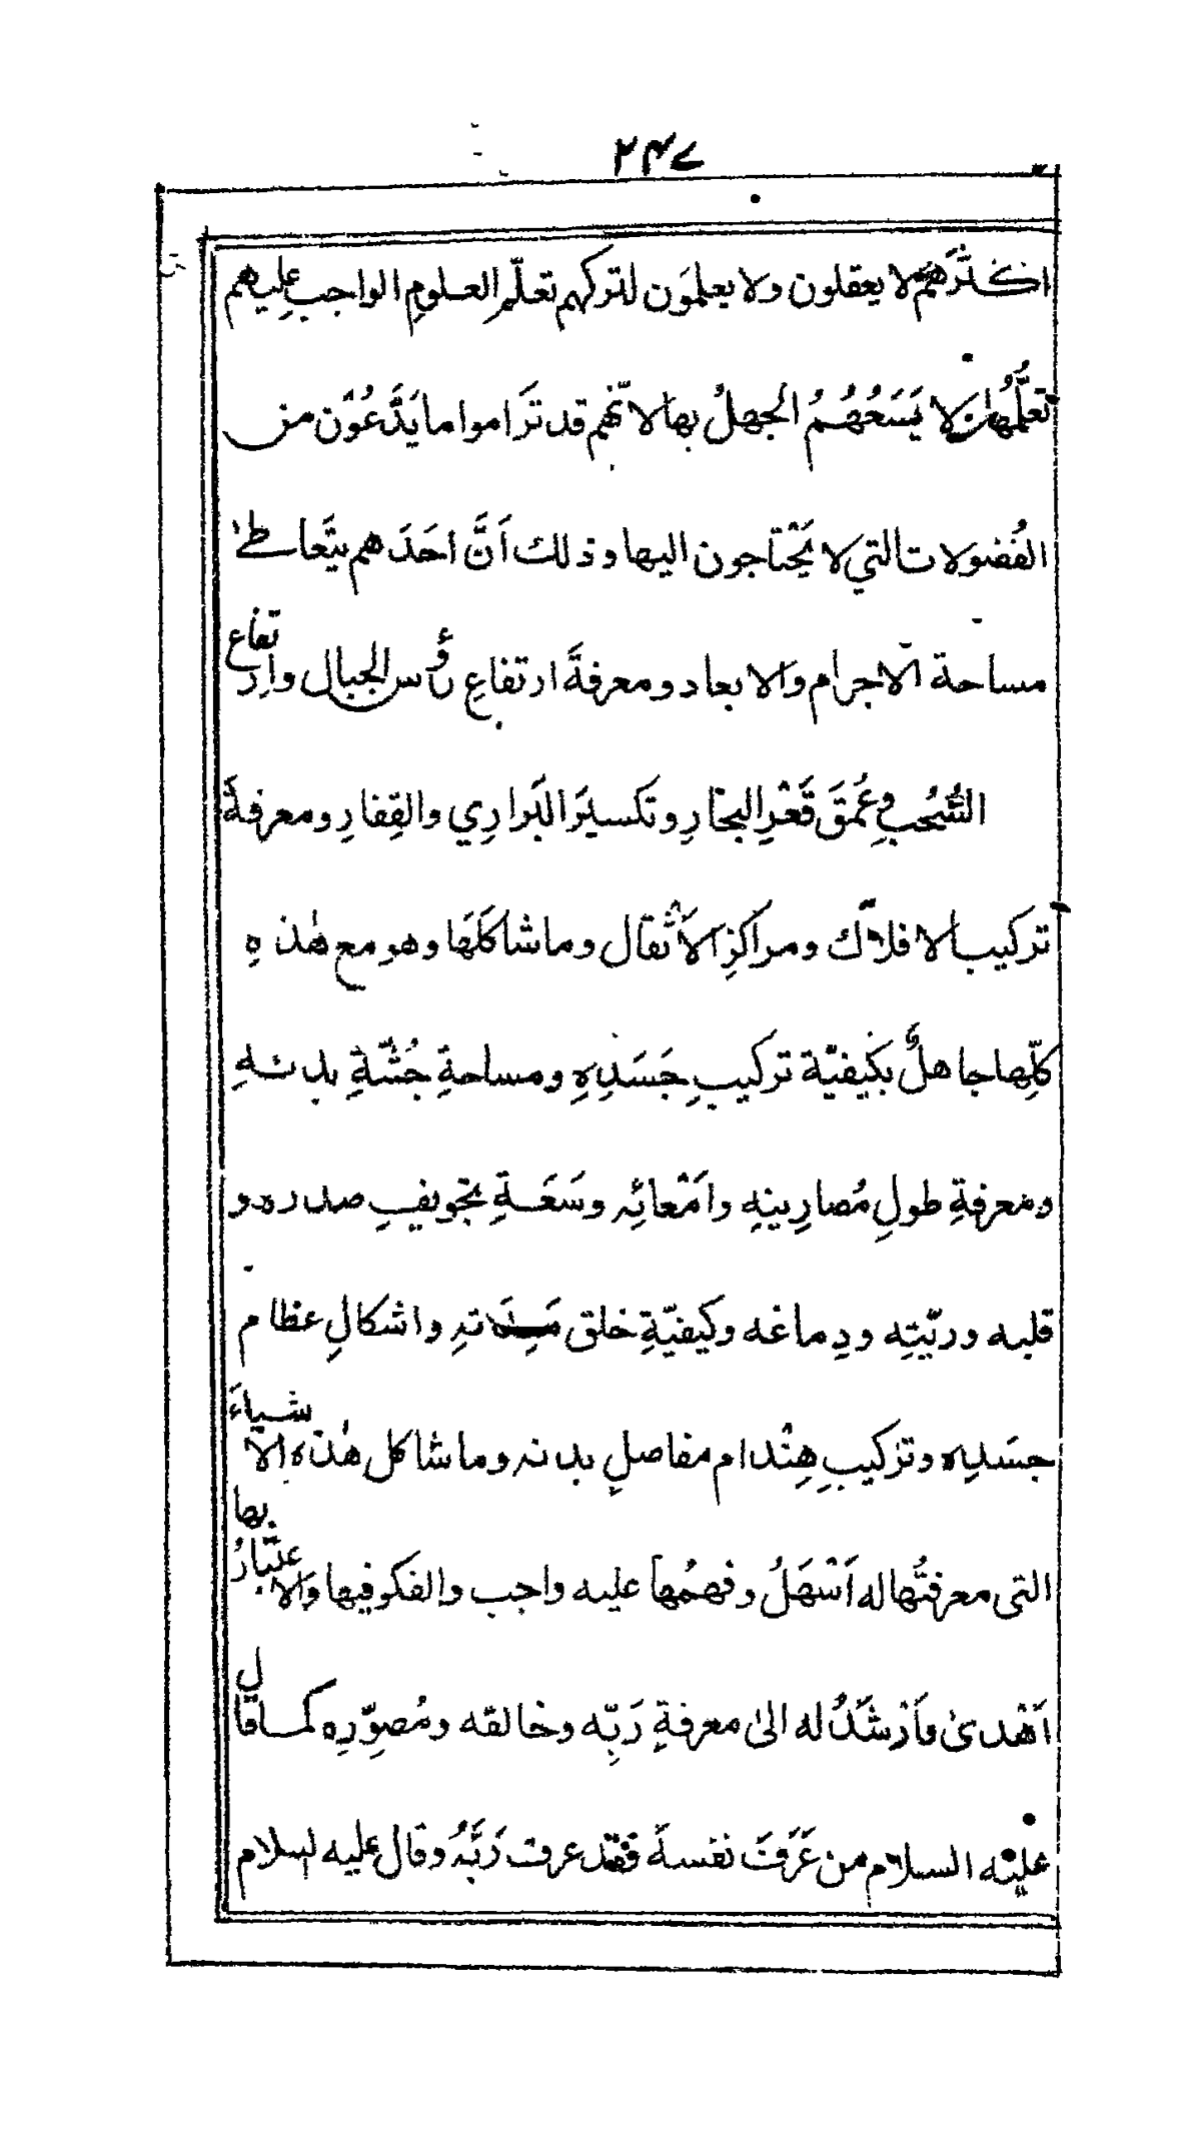 ۲۴۷
اكثَرَهم لا يعقلون ولا يعلمَون لتركهم تعلّم العلومِ الواجبِ عليهم
تعلُّمُها لا يَسَعُهُمُ الجهلُ بها لانّهم قد تَراموا ما يَدَّعُوْن من
الفُضولات التي لا يَحْتاجون اليها وذلك اَنَّ احَدَهم يتَعاطىٰ
مساحة الاجرام والابعاد ومعرفةَ ارتفاعِ رؤس الجبال وارتفاع
السُّحُبِ وعُمقَ قَعْرِ البحارِ وتكسيرَ البَرارِي والقِفارِ ومعرفةَ
تركيب الافلاك ومراكزِ الاَثْقال وما شاكَلَها وهو مع هٰذهِ
كلِّها جاهلٌ بكَيفيّة تركيبِ جَسَدِهِ ومساحةِ جُثّةِ بدنهِ
ومعرفةِ طولِ مُصارِينهِ واَمْعائِه وسَعَةِ تجويفِ صدره و
قلبه وريّتِه ودِماغه وكيفيّةِ خلق مَعِدَته واشكالِ عظام
جسَدِه وتركيبِ هِنْدام مفاصلِ بدنه وما شاكل هٰذه الاشياءَ
التى معرفتُها له اَسْهَلُ وفهمُها عليه واجب والفكر فيها والاعتبارُ بها
اَهْدىٰ واَرْشَدُ له الىٰ معرفةِ رَبِّه وخالقه ومُصوِّرِه كما قال
عليه السلام من عَرَفَ نفسهَ فقد عرف رَبَّهُ وقال عليه السلام